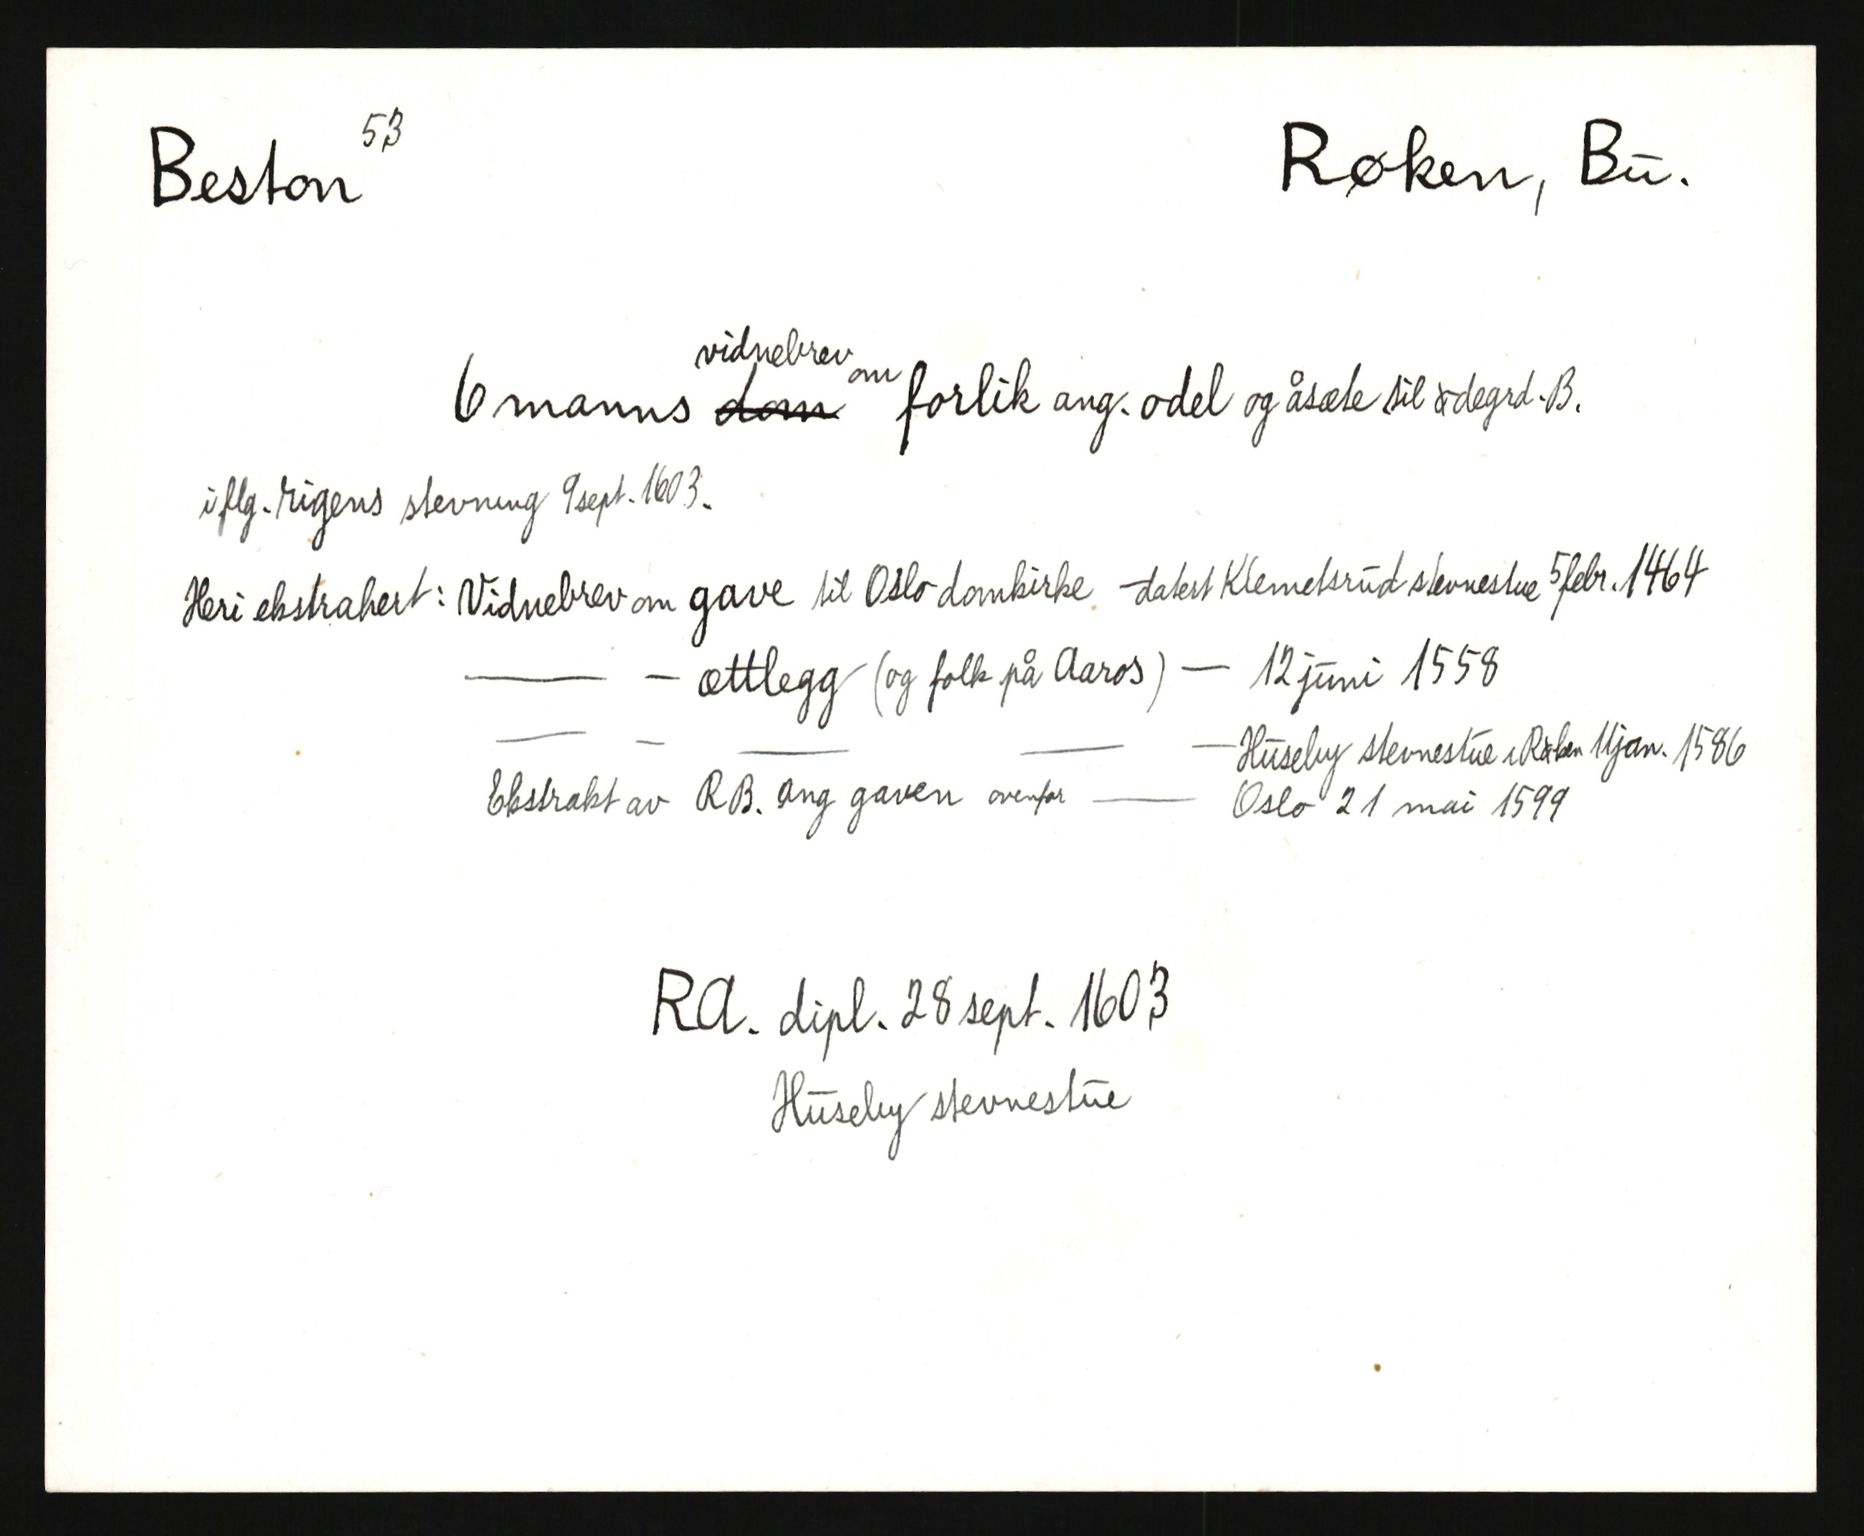 Beston 53
Røken, Bu.
vidnebrev om
6 manns dom forlik ang. odel og åsæte til ødegrd. B.
iflg. rigens stevning 9 sept. 1603.
Heri ekstrahert: Vidnebrev om gave til Oslo domkirke - datert Klemetsrud stevnestue 5 febr. 1464
— — ættlegg (og folk på Aaros) — 12 juni 1558
— — — — — Huseby stevnestue i Røken 11 jan. 1586
Ekstrakt av R B. ang gaven ovenfor — Oslo 21 mai 1599
RA. dipl. 28 sept. 1603
Huseby stevnestue